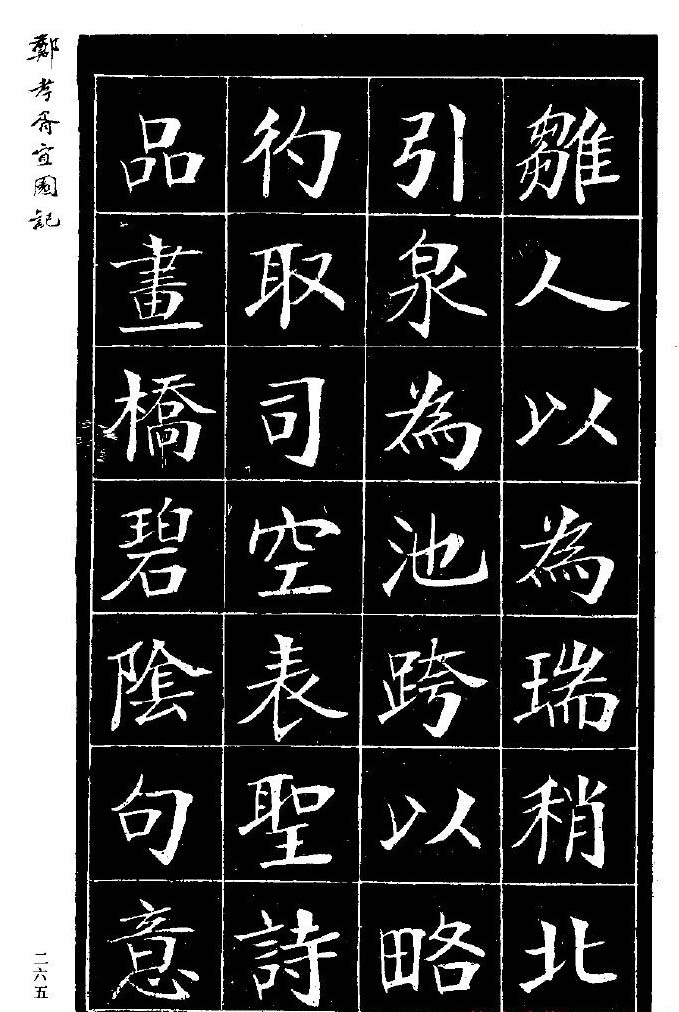 雛人以為瑞稍北
引泉為池跨以略
彴取司空表聖詩
品畫橋碧陰句意
鄭孝胥宜園記
二六五